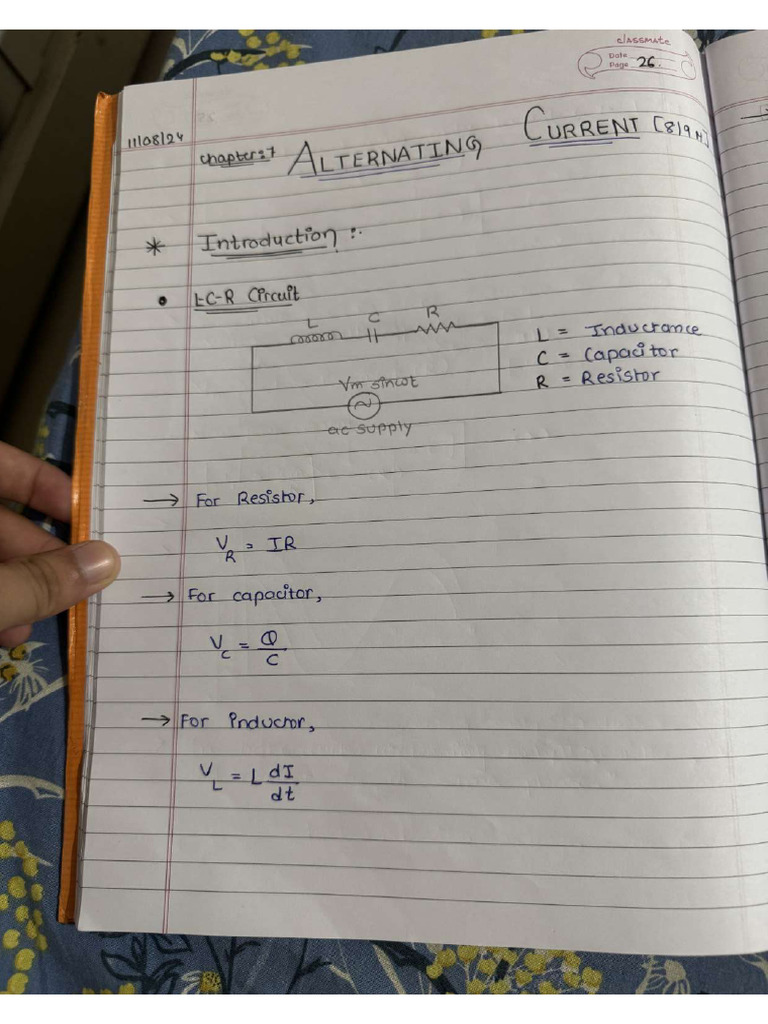 classmate
Date
Page 26.
11/08/24
Chapter:7 ALTERNATING CURRENT [8/9 M]
* Introduction :-
• L-C-R Circuit
L C R
L = Inductance
C = Capacitor
R = Resistor
Vm sinωt
~
ac supply
→ For Resistor,
V_R = IR
→ For capacitor,
V_C = Q/C
→ For Inductor,
V_L = L dI/dt